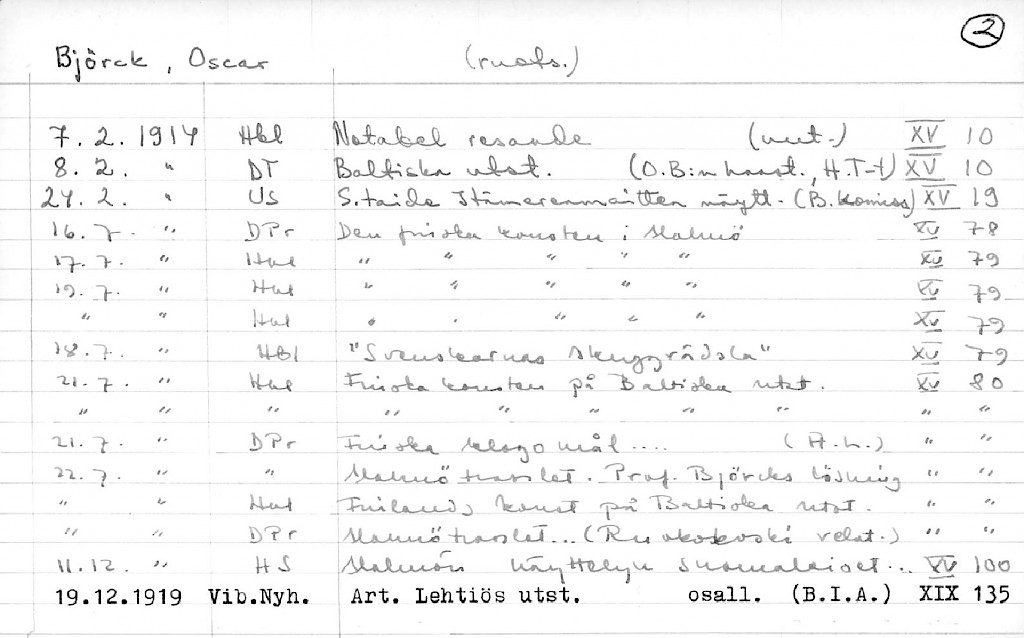 2
Björck, Oscar (ruots.)
7. 2. 1914 Hbl Notabel resande (uut.) XV 10
8. 2. " DT Baltiska utst. (O.B:n haast., H.T-t) XV 10
24. 2. " US S.taide Itämerenmaitten näytt. (B. komiss) XV 19
16. 7. " DPr Den finska konsten i Malmö XV 78
17. 7. " " " " " " XV 79
19. 7. " " " " " " XV 79
" " " " " " " XV 79
18. 7. " HBl "Svenskarnas skuggrädsla" XV 79
21. 7. " Finska konsten på Baltiska utst. XV 80
" " " " " " " " " "
21. 7. " DPr Finska klagomål.... (A.L.) " "
22. 7. " " Malmötrasslet. Prof. Björcks lösning " "
" " Finlands konst på Baltiska utst. " "
" " DPr Malmötrasslet... (Ruokokoski velat.) " "
11.12. " HS Malmön näyttelyn suomalaiset... XV 100
19.12.1919 Vib.Nyh. Art. Lehtiös utst. osall. (B.I.A.) XIX 135